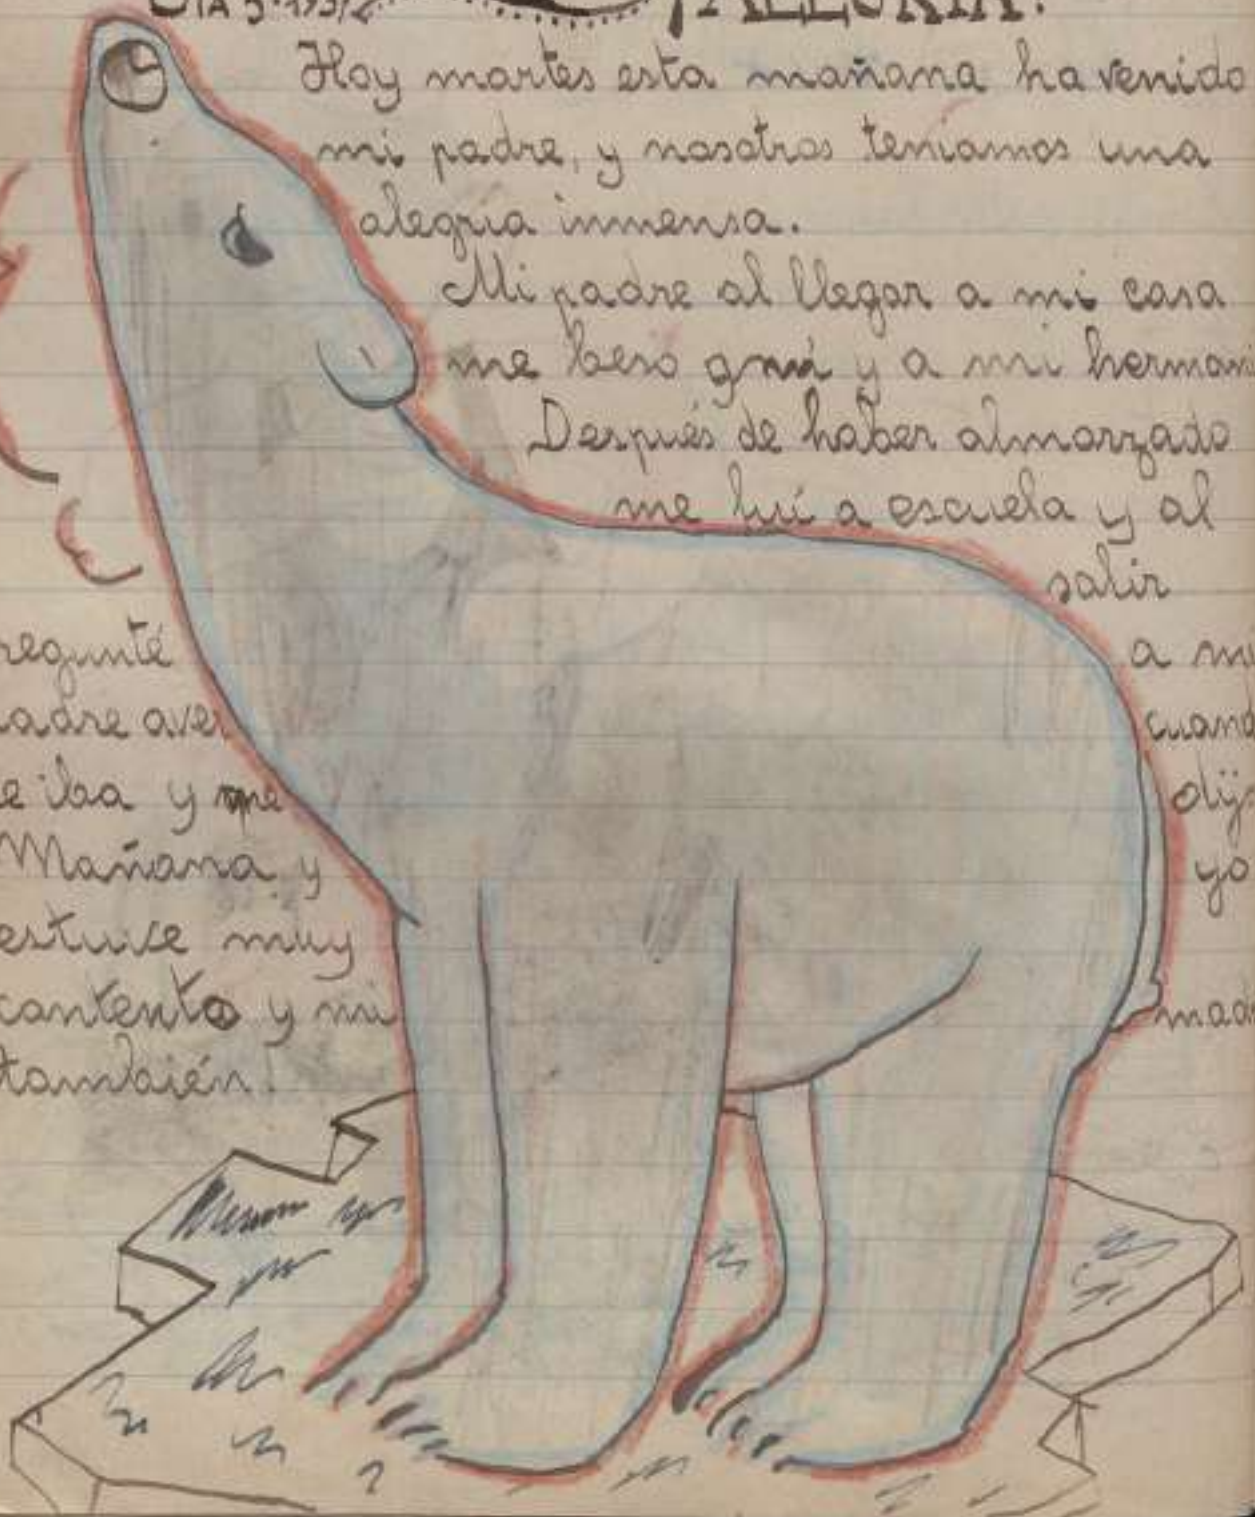 ¡ALEGRIA!
Hoy martes esta mañana ha venido
mi padre, y nosotros teniamos una
alegria inmensa.
Mi padre al llegar a mi casa
me beso y a mi
Después de haber almorzado
me fuí a escuela y al
salir
regunté a mi
adre aver cuand
e iba y me dijo
Mañana y yo
estuve muy
contento y mi mad
también.